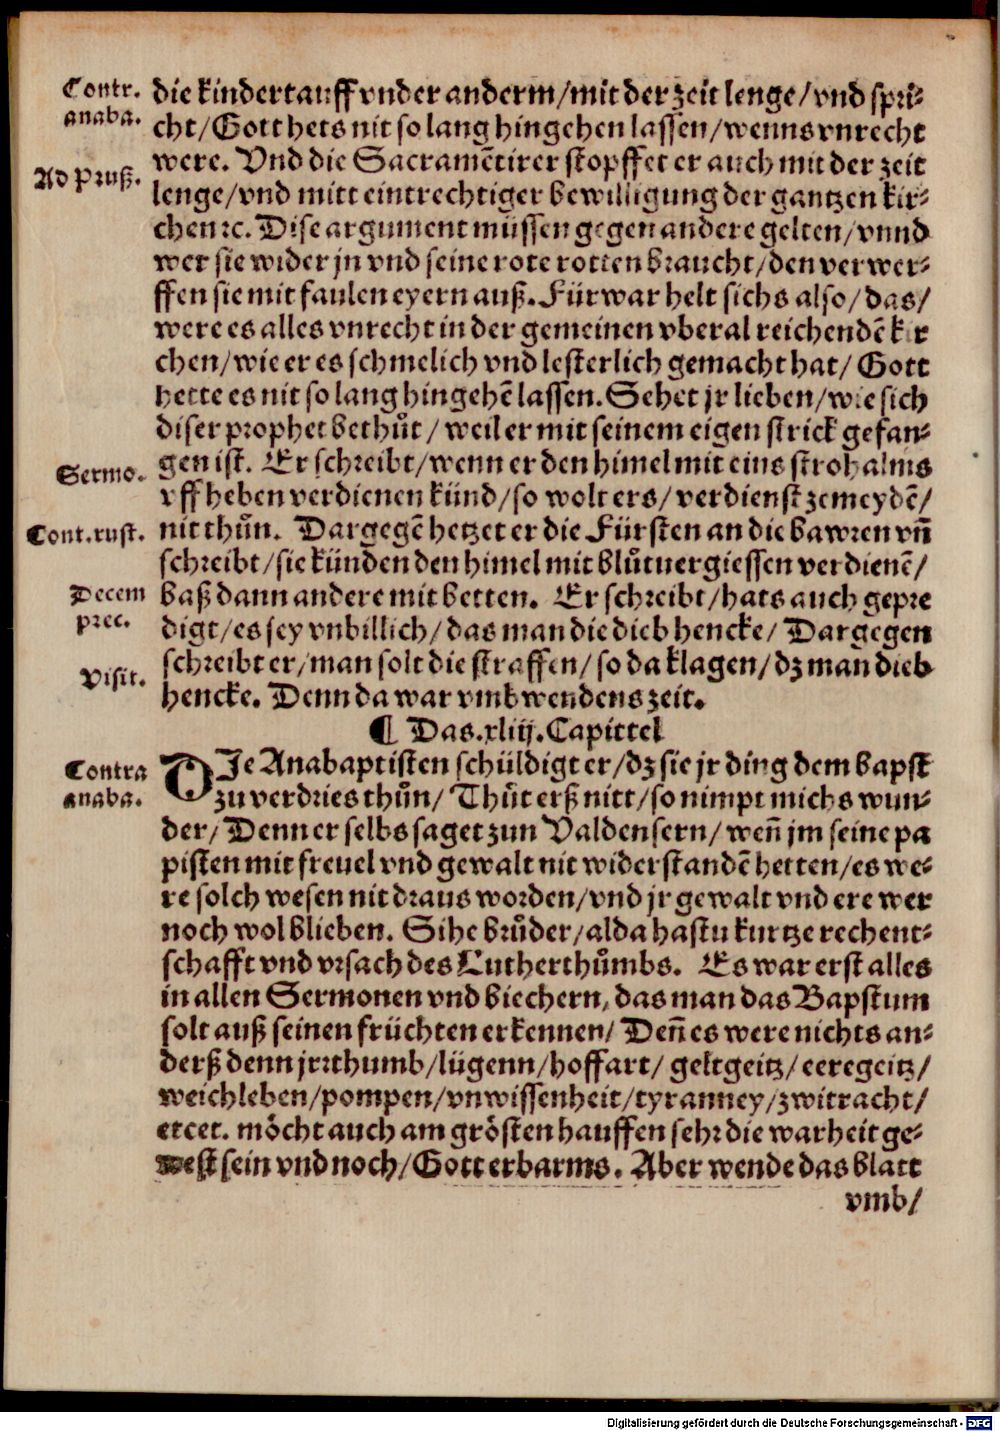 Contr.
anaba.
die kindertauff vnder anderm/mit der zeit lenge/vnd spri⸗
cht/Gott hets nit so lang hingehen lassen/wenns vnrecht
were. Vnd die Sacramētirer stopffet er auch mit der zeit
Ad Pruß.
lenge/vnd mitt eintrechtiger bewilligung der gantzen kir⸗
chen ꝛc. Dise argument müssen gegen andere gelten/vnnd
wer sie wider jn vnd seine rote rotten braucht/den verwer⸗
ffen sie mit faulen eyern auß. Fürwar helt sichs also/das/
were es alles vnrecht in der gemeinen vberal reichendē kir
chen/wie er es schmelich vnd lesterlich gemacht hat/ Gott
hette es nit so lang hingehē lassen. Sehet jr lieben/wie sich
diser prophet bethůt/ weil er mit seinem eigen strick gefan⸗
gen ist. Er schreibt/wenn er den himel mit eins strohalms
Sermo.
vff heben verdienen künd/so wolt ers/verdienst zemeydē/
nit thůn. Dargegē hetzet er die Fürsten an die bawren vñ
Cont.rust.
schreibt/sie künden den himel mit blůtuergiessen verdienē/
baß dann andere mit betten. Er schreibt/hats auch gepre
Decem
prec.
digt/es sey vnbillich/das man die dieb hencke/ Dargegen
schreibt er/man solt die straffen/so da klagen/dz man dieb
Visit.
hencke. Denn da war vmbwendens zeit.
¶ Das.xliij.Capittel
Contra
anaba.
DIe Anabaptisten schüldigt er/dz sie jr ding dem bapst
zu verdries thůn/ Thůt erß nitt/so nimpt michs wun⸗
der/ Denn er selbs saget zun Valdensern/weñ jm seine pa
pisten mit freuel vnd gewalt nit widerstandē hetten/es we⸗
re solch wesen nit draus worden/vnd jr gewalt vnd ere wer
noch wol blieben. Sihe brůder/alda hastu kurtze rechent⸗
schafft vnd vrsach des Lutherthůmbs. Es war erst alles
in allen Sermonen vnd biechern, das man das Bapstum
solt auß seinen früchten erkennen/ Deñ es were nichts an⸗
derß denn jrrthumb/lügenn/hoffart/ geltgeitz/eeregeitz/
weichleben/pompen/vnwissenheit/tyranney/zwitracht/
etcet. möcht auch am grösten hauffen sehr die warheit ge⸗
west sein vnd noch/Gott erbarms. Aber wende das blatt
vmb/
Digitalisierung gefördert durch die Deutsche Forschungsgemeinschaft - DFG